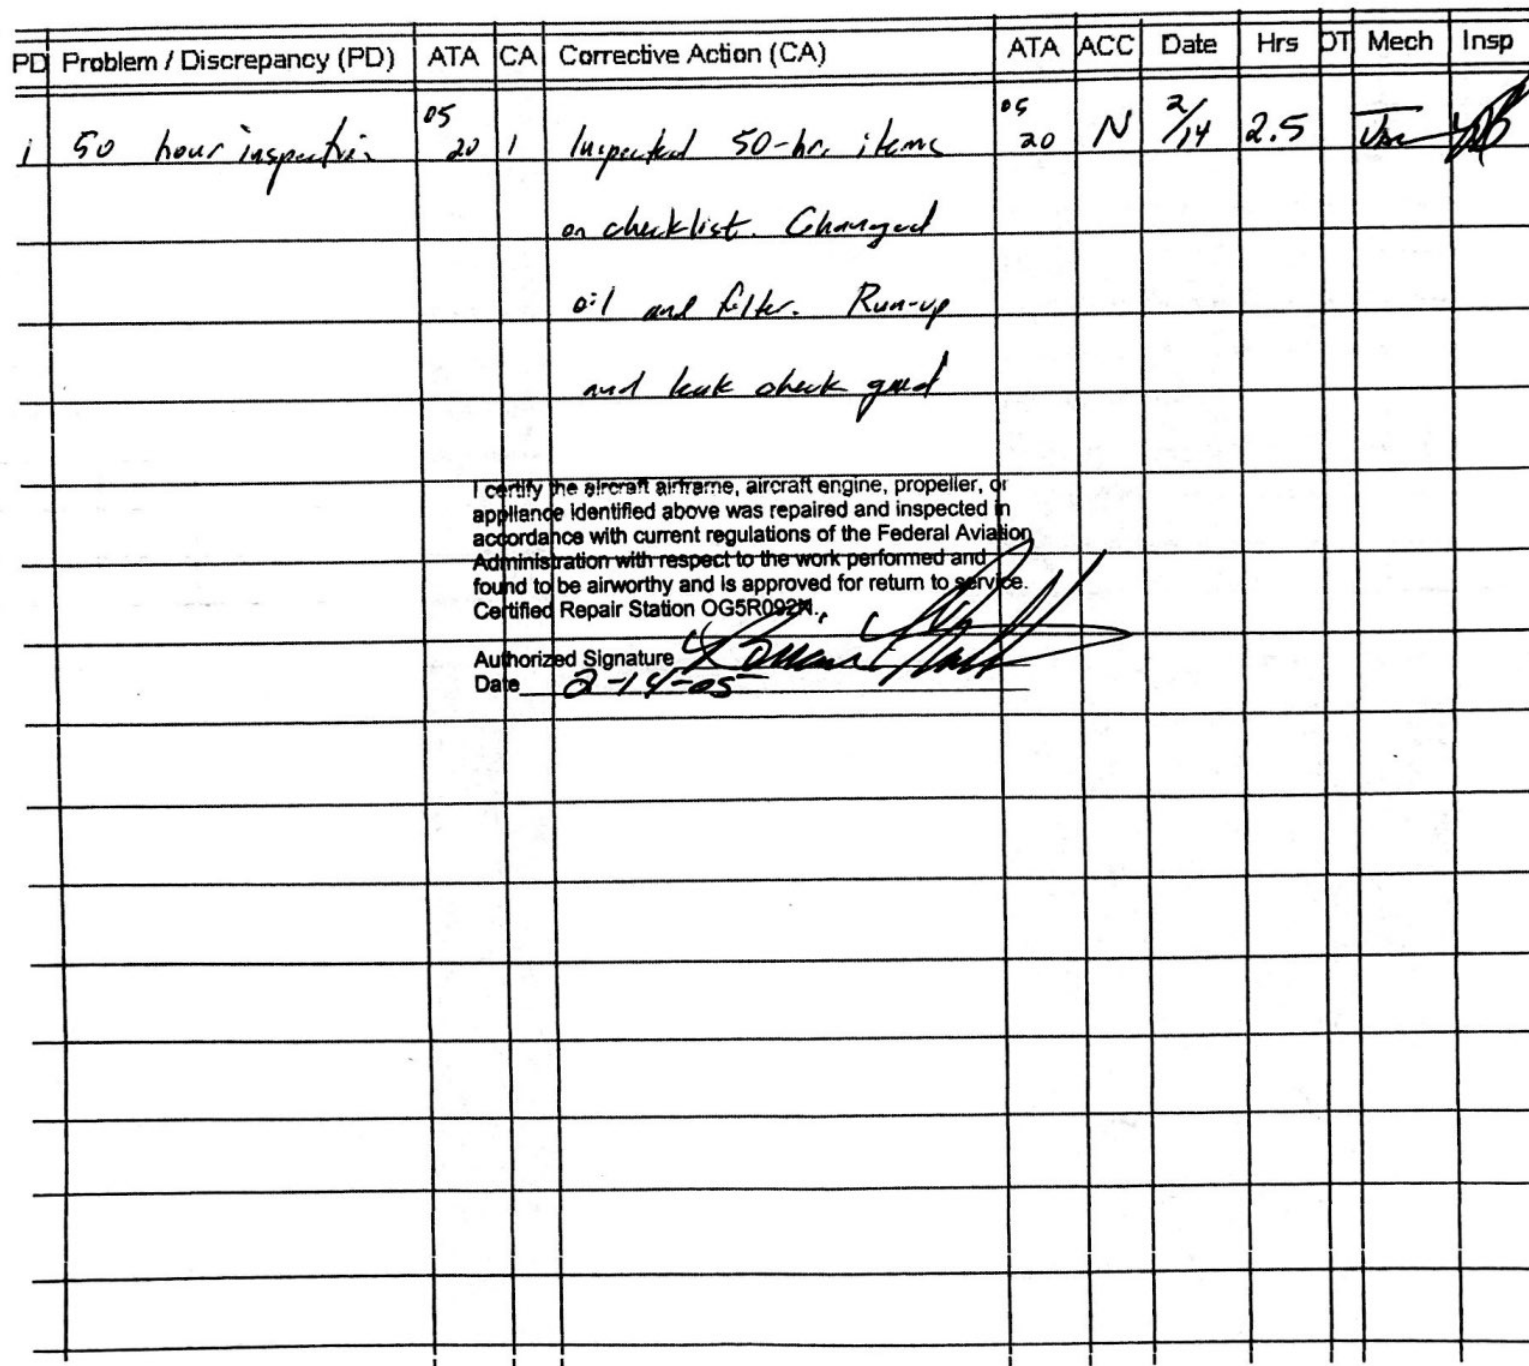 PD Problem / Discrepancy (PD) ATA CA Corrective Action (CA) ATA ACC Date Hrs OT Mech Insp
1 50 hour inspection 05 20 1 Inspected 50-hr. items 05 20 N 2/14 2.5
on checklist. Changed
oil and filter. Run-up
and leak check good
I certify the aircraft airframe, aircraft engine, propeller, or
appliance identified above was repaired and inspected in
accordance with current regulations of the Federal Aviation
Administration with respect to the work performed and
found to be airworthy and is approved for return to service.
Certified Repair Station OG5R092N.
Authorized Signature
Date 2-14-05